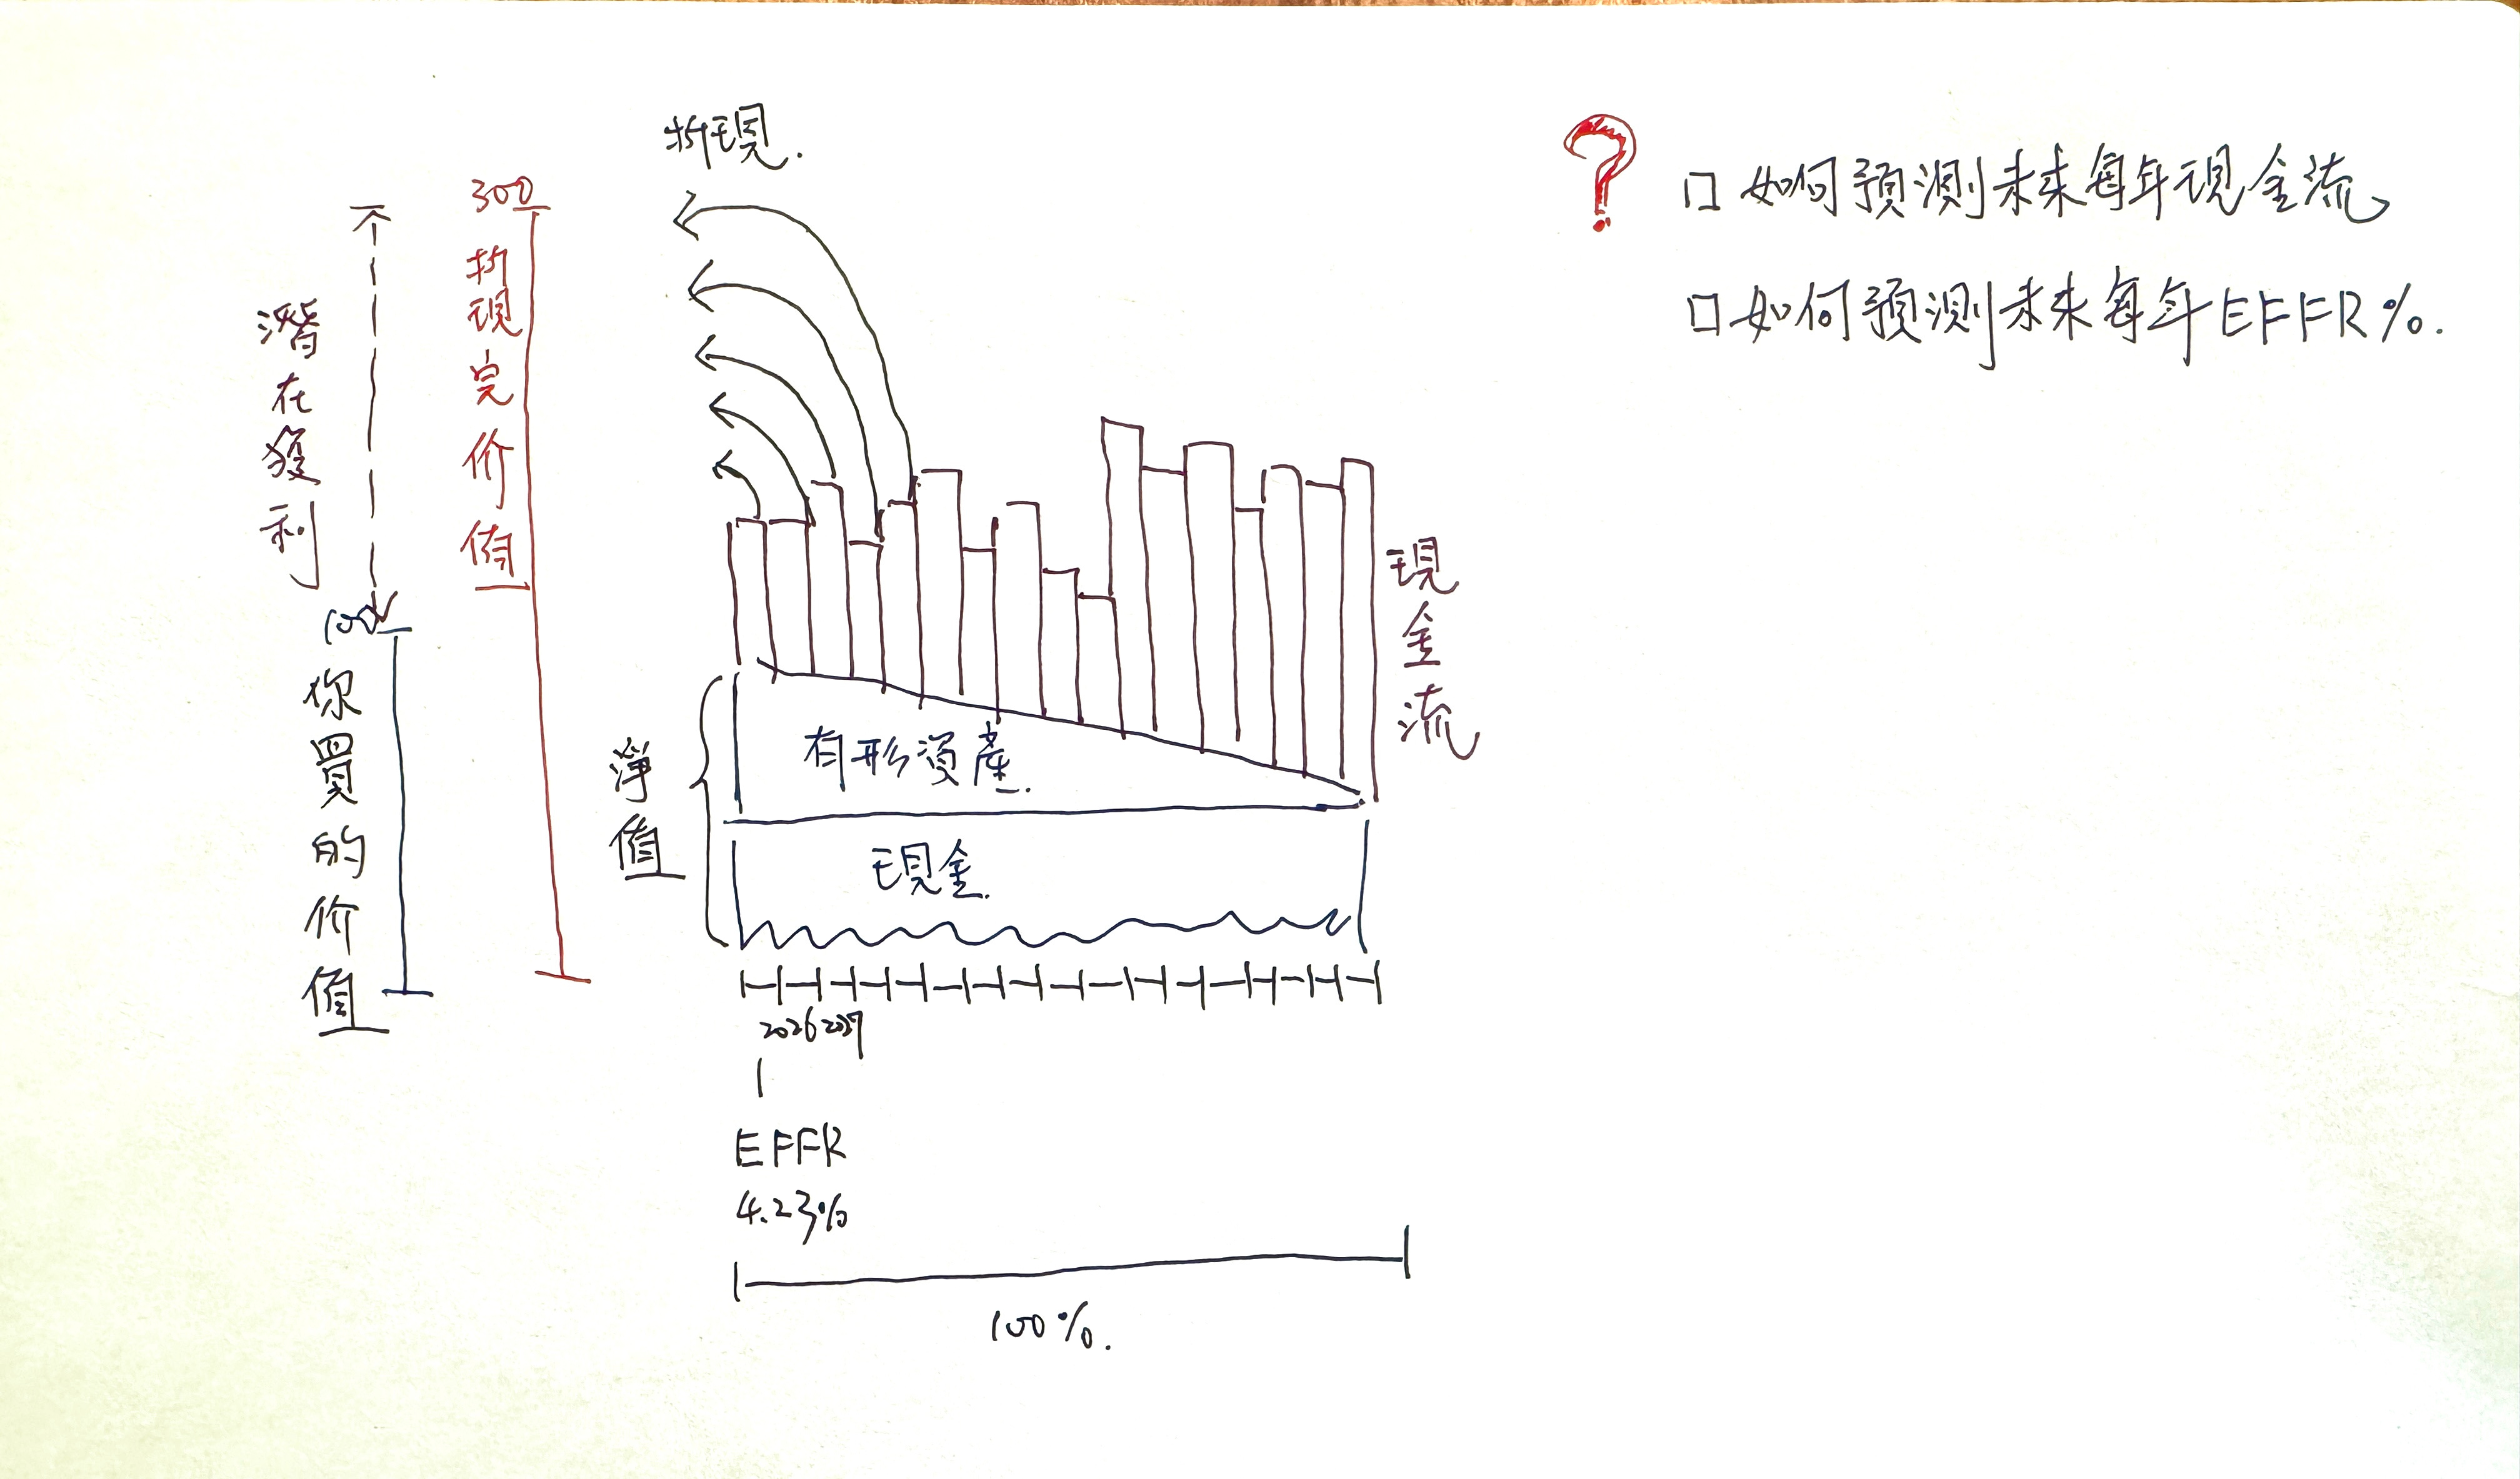 折現.
300
折現完价值
潛在獲利
100
你買的价值
淨值
有形資產.
現金.
現金流
2026 2027
EFFR
4.23%
100%.
?
□ 如何預測未來每年現金流
□ 如何預測未來每年EFFR%.